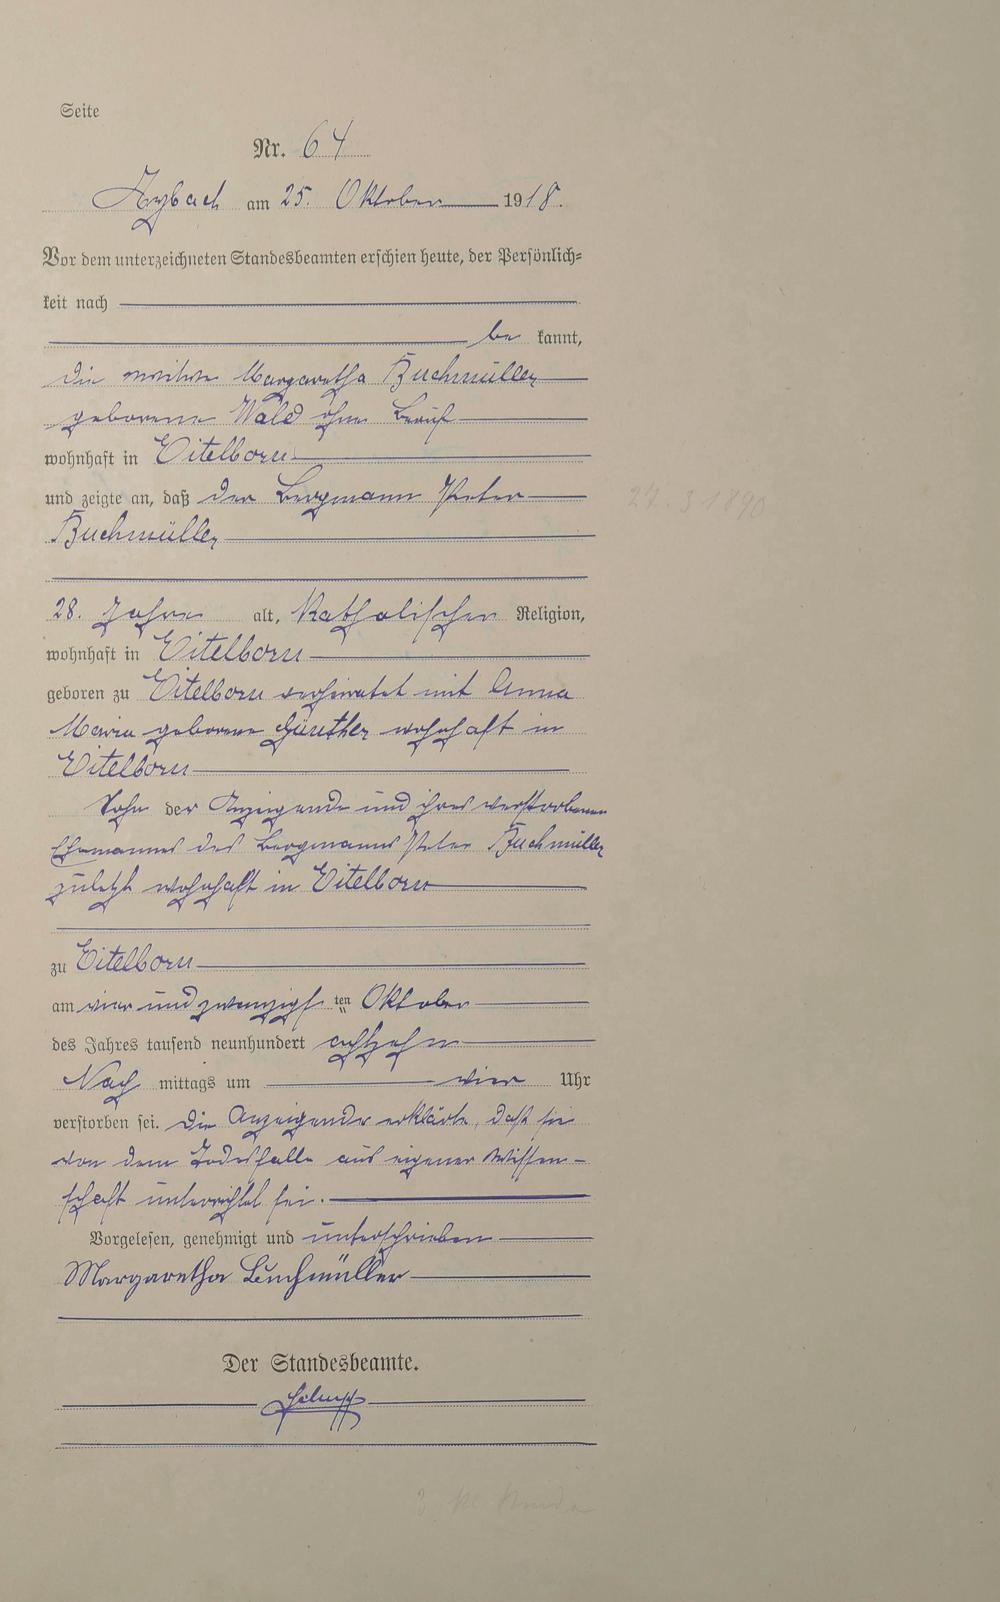 Seite
Nr. 64
Arzbach am 25. Oktober 1918.
Vor dem unterzeichneten Standesbeamten erschien heute, der Persönlich-
keit nach
be kannt,
die Witwe Margaretha Buchmüller
geborene Wald ohne Beruf
wohnhaft in Eitelborn
und zeigte an, daß der Bergmann Peter
27.3.1890
Buchmüller
28. Jahre alt, Katholischer Religion,
wohnhaft in Eitelborn
geboren zu Eitelborn verheiratet mit Anna
Maria geborene Günther wohnhaft in
Eitelborn
Sohn der Anzeigende und ihres verstorbenen
Ehemannes des Bergmanns Peter Buchmüller
zuletzt wohnhaft in Eitelborn
zu Eitelborn
am vier und zwanzigsten Oktober
des Jahres tausend neunhundert achtzehn
Nach mittags um vier Uhr
verstorben sei. Die Anzeigende erklärte, daß sie
von dem Todesfalle aus eigener Wissen-
schaft unterrichtet sei.
Vorgelesen, genehmigt und unterschrieben
Margaretha Buchmüller
Der Standesbeamte.